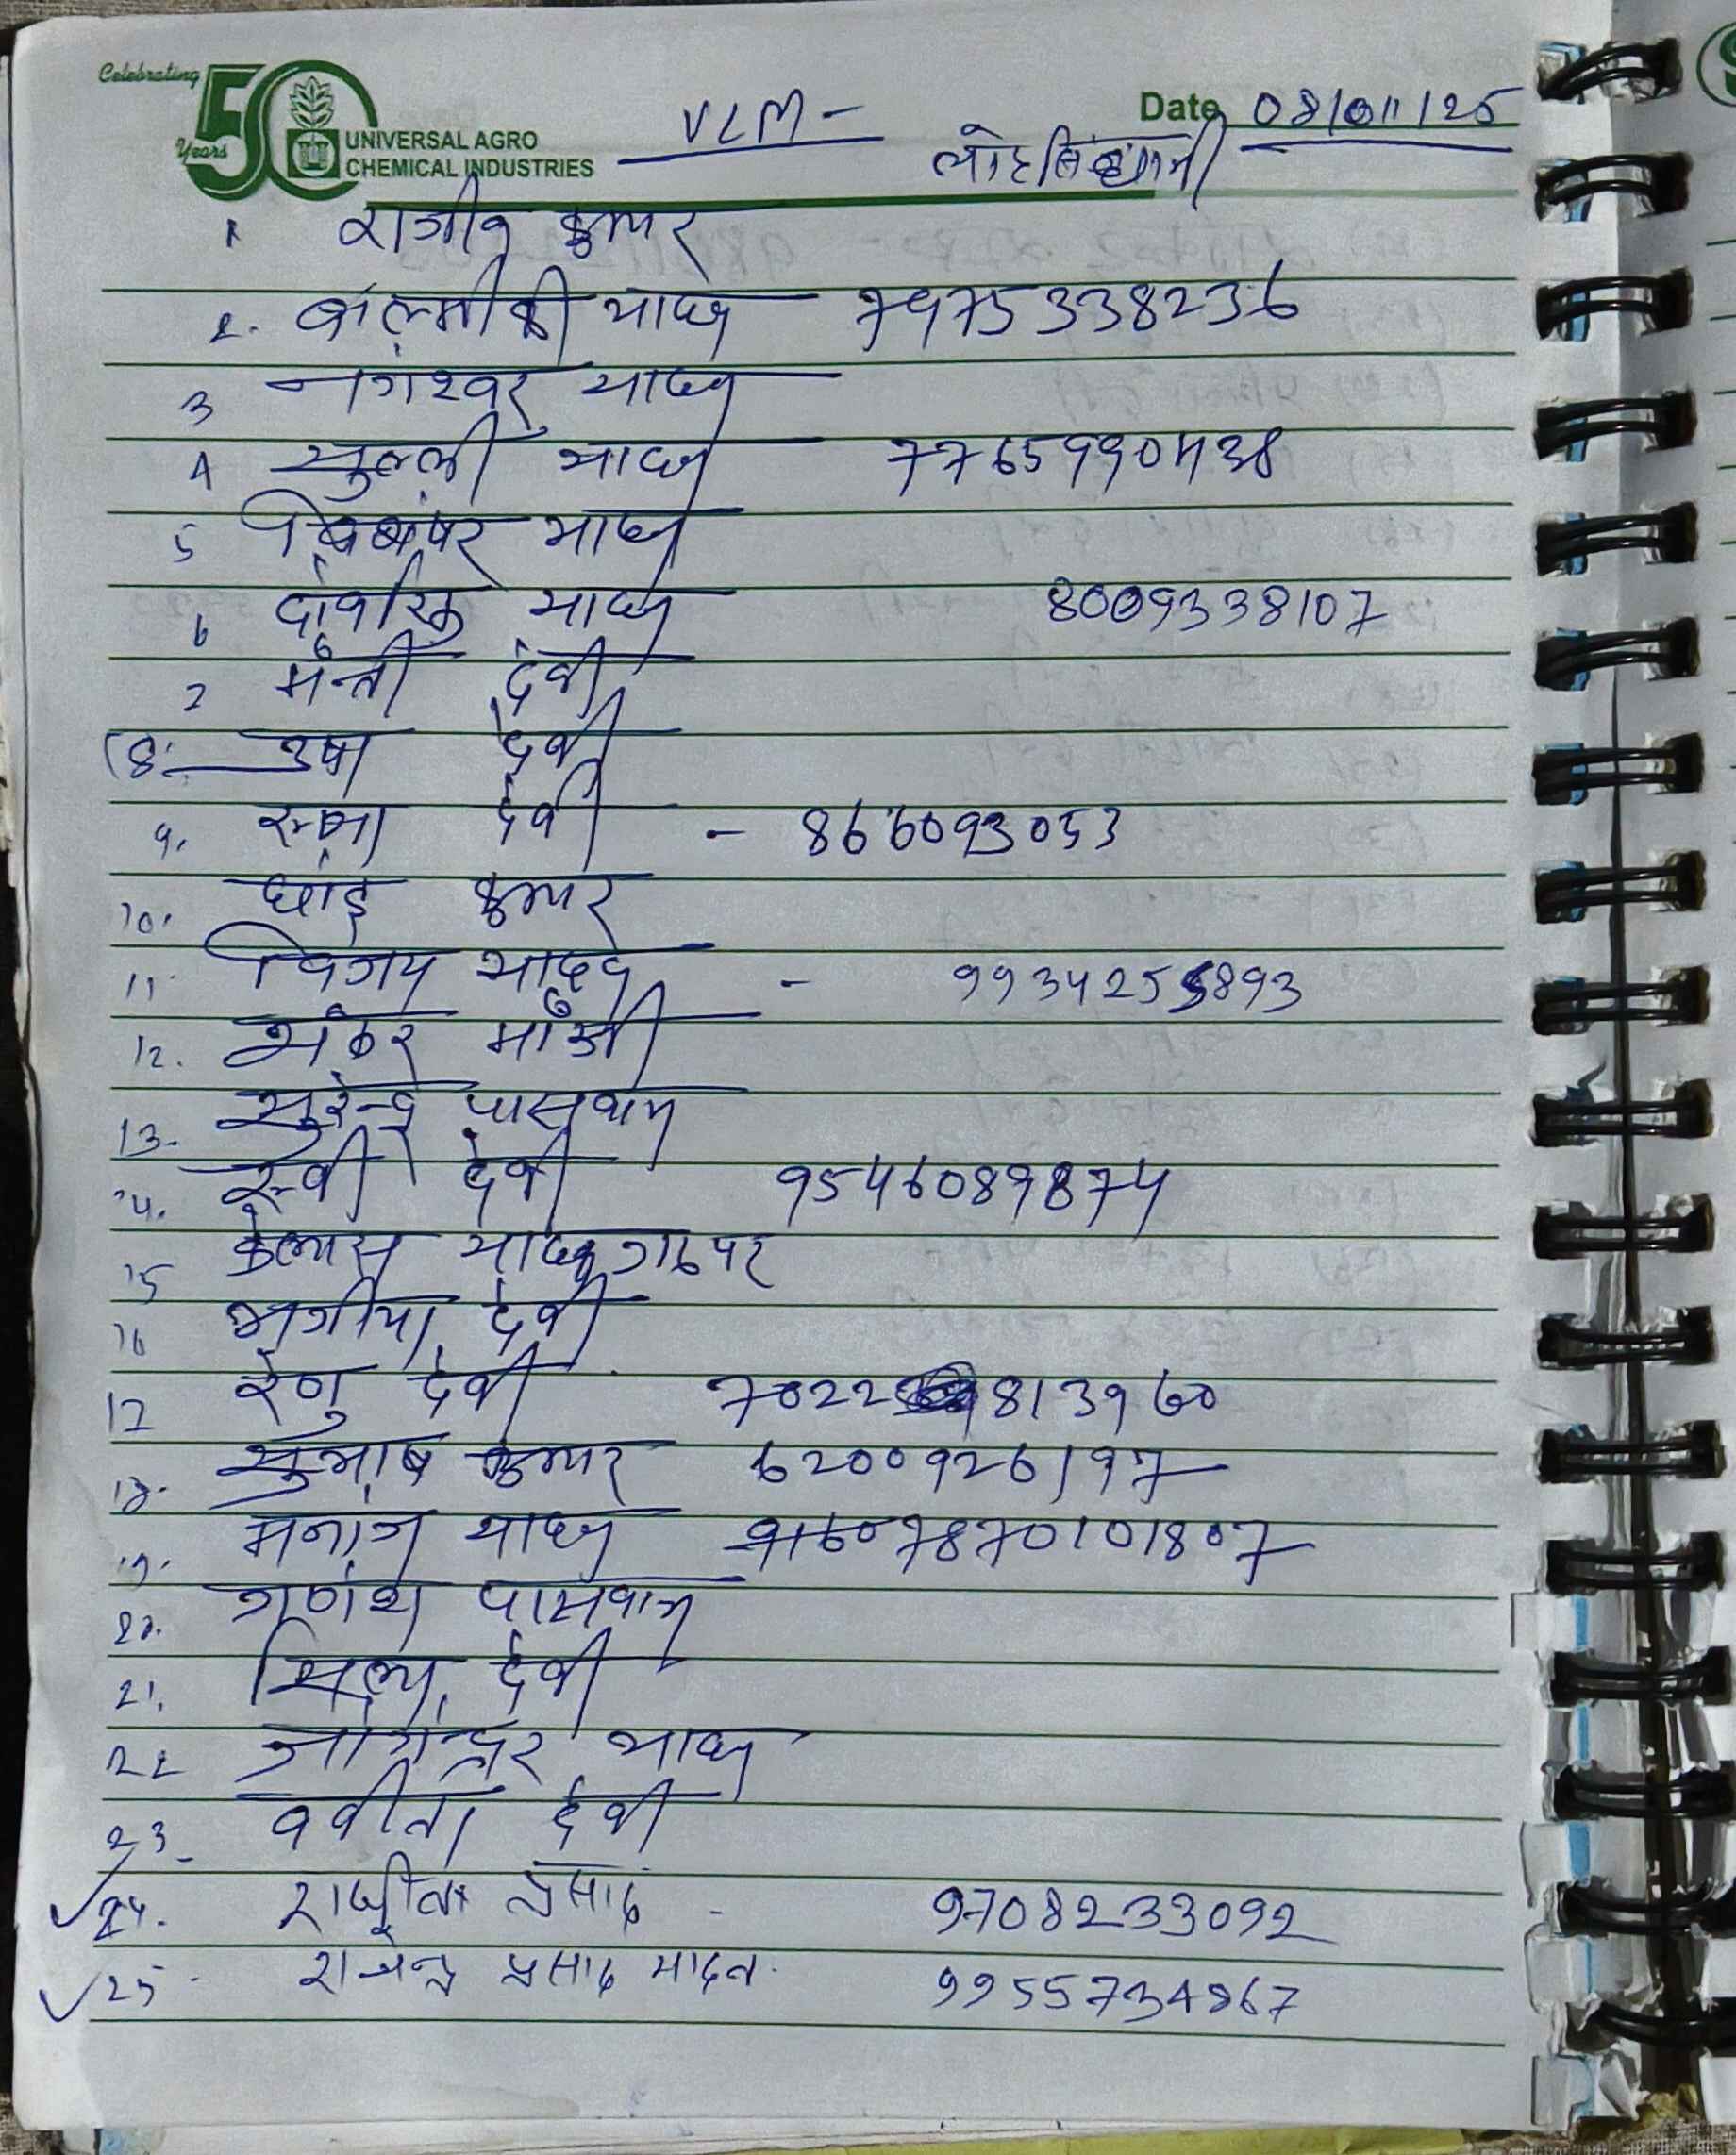 Celebrating 50 Years
UNIVERSAL AGRO
CHEMICAL INDUSTRIES
VLM -
Date 08/011/25
1 राजीव कुमार
2. बाल्मीकी यादव 7975338236
3 नागेश्वर यादव
4 मुल्ली यादव 7765990438
5 यादव
6 यादव 8009338107
7 मन्ती देवी
(8. उषा देवी
9. देवी - 866093053
10. कुमार
11. विजय यादव - 9934255893
12. शंकर माँझी
13. सुरेन्द्र पासवान
14. रूबी देवी 9546089874
15 कैलास यादव
16 देवी
17 रेणु देवी 7022 813960
18. सुभाष कुमार 6200926197
19. मनोज यादव 91607870101807
20. गणेश पासवान
21. देवी
22 जोगेन्दर यादव
23. बबीता देवी
24. प्रसाद - 9708233092
25. राजेन्द्र प्रसाद यादव. 9955734867